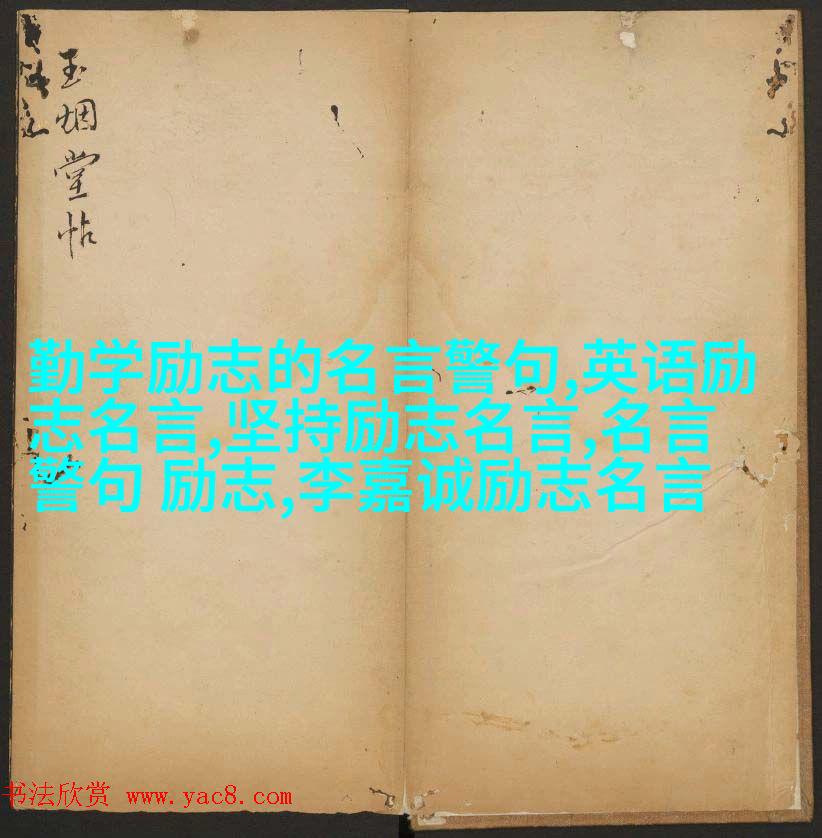 玉烟堂帖
勤学励志的名言警句,英语励
志名言,坚持励志名言,名言
警句 励志,李嘉诚励志名言
书法欣赏 www.yac8.com